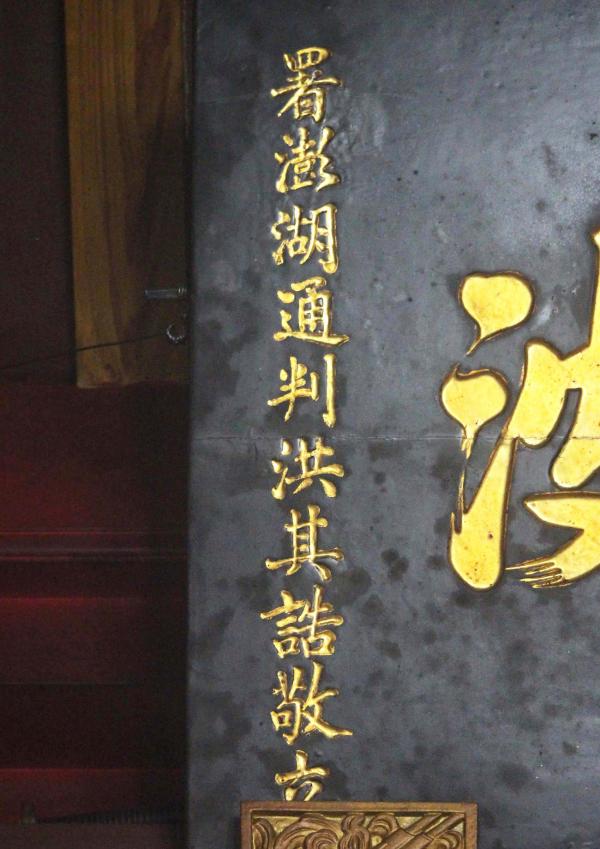 署澎湖通判洪其誥敬立